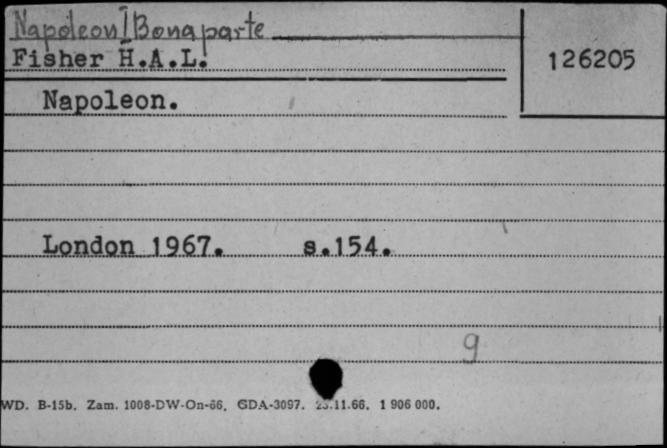 Napoleon I Bonaparte
Fisher H.A.L.
126205
Napoleon.
London 1967. s.154.
9
WD. B-15b. Zam. 1008-DW-On-66. GDA-3097. 23.11.66. 1 906 000.